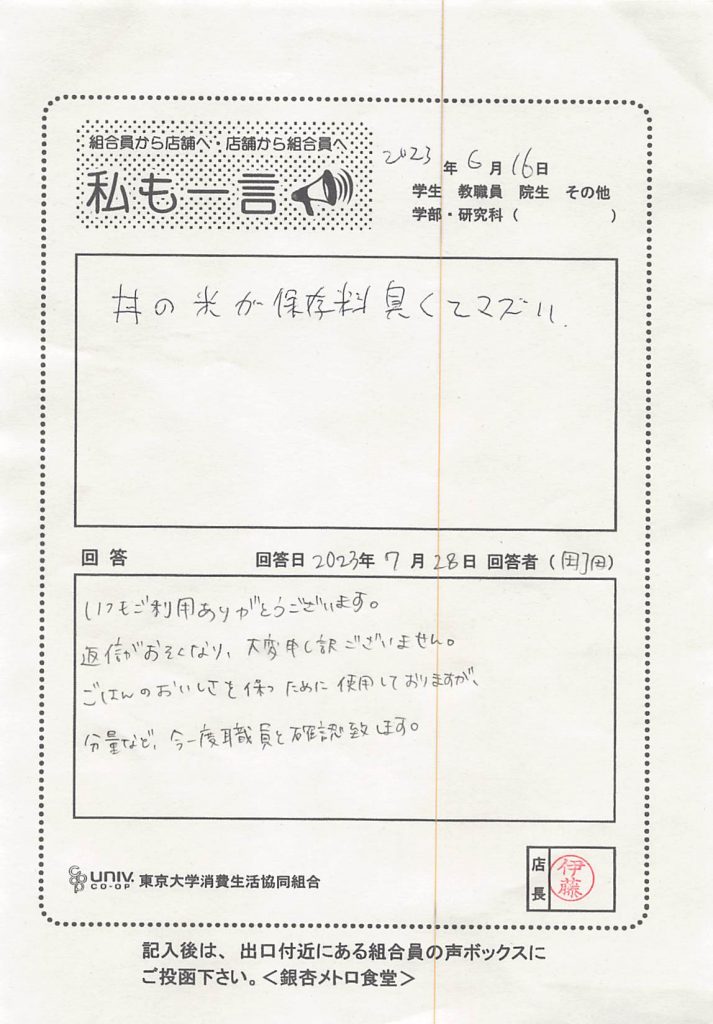 組合員から店舗へ・店舗から組合員へ
私も一言
2023年6月16日
学生 教職員 院生 その他
学部・研究科（ ）
丼の米が保存料臭くてマズい.
回答 回答日2023年7月28日 回答者（ ）
いつもご利用ありがとうございます。
返信がおそくなり、大変申し訳ございません。
ごはんのおいしさを保つために使用しておりますが、
分量など、今一度職員と確認致します。
UNIV. CO-OP 東京大学消費生活協同組合
店長 伊藤
記入後は、出口付近にある組合員の声ボックスに
ご投函下さい。＜銀杏メトロ食堂＞